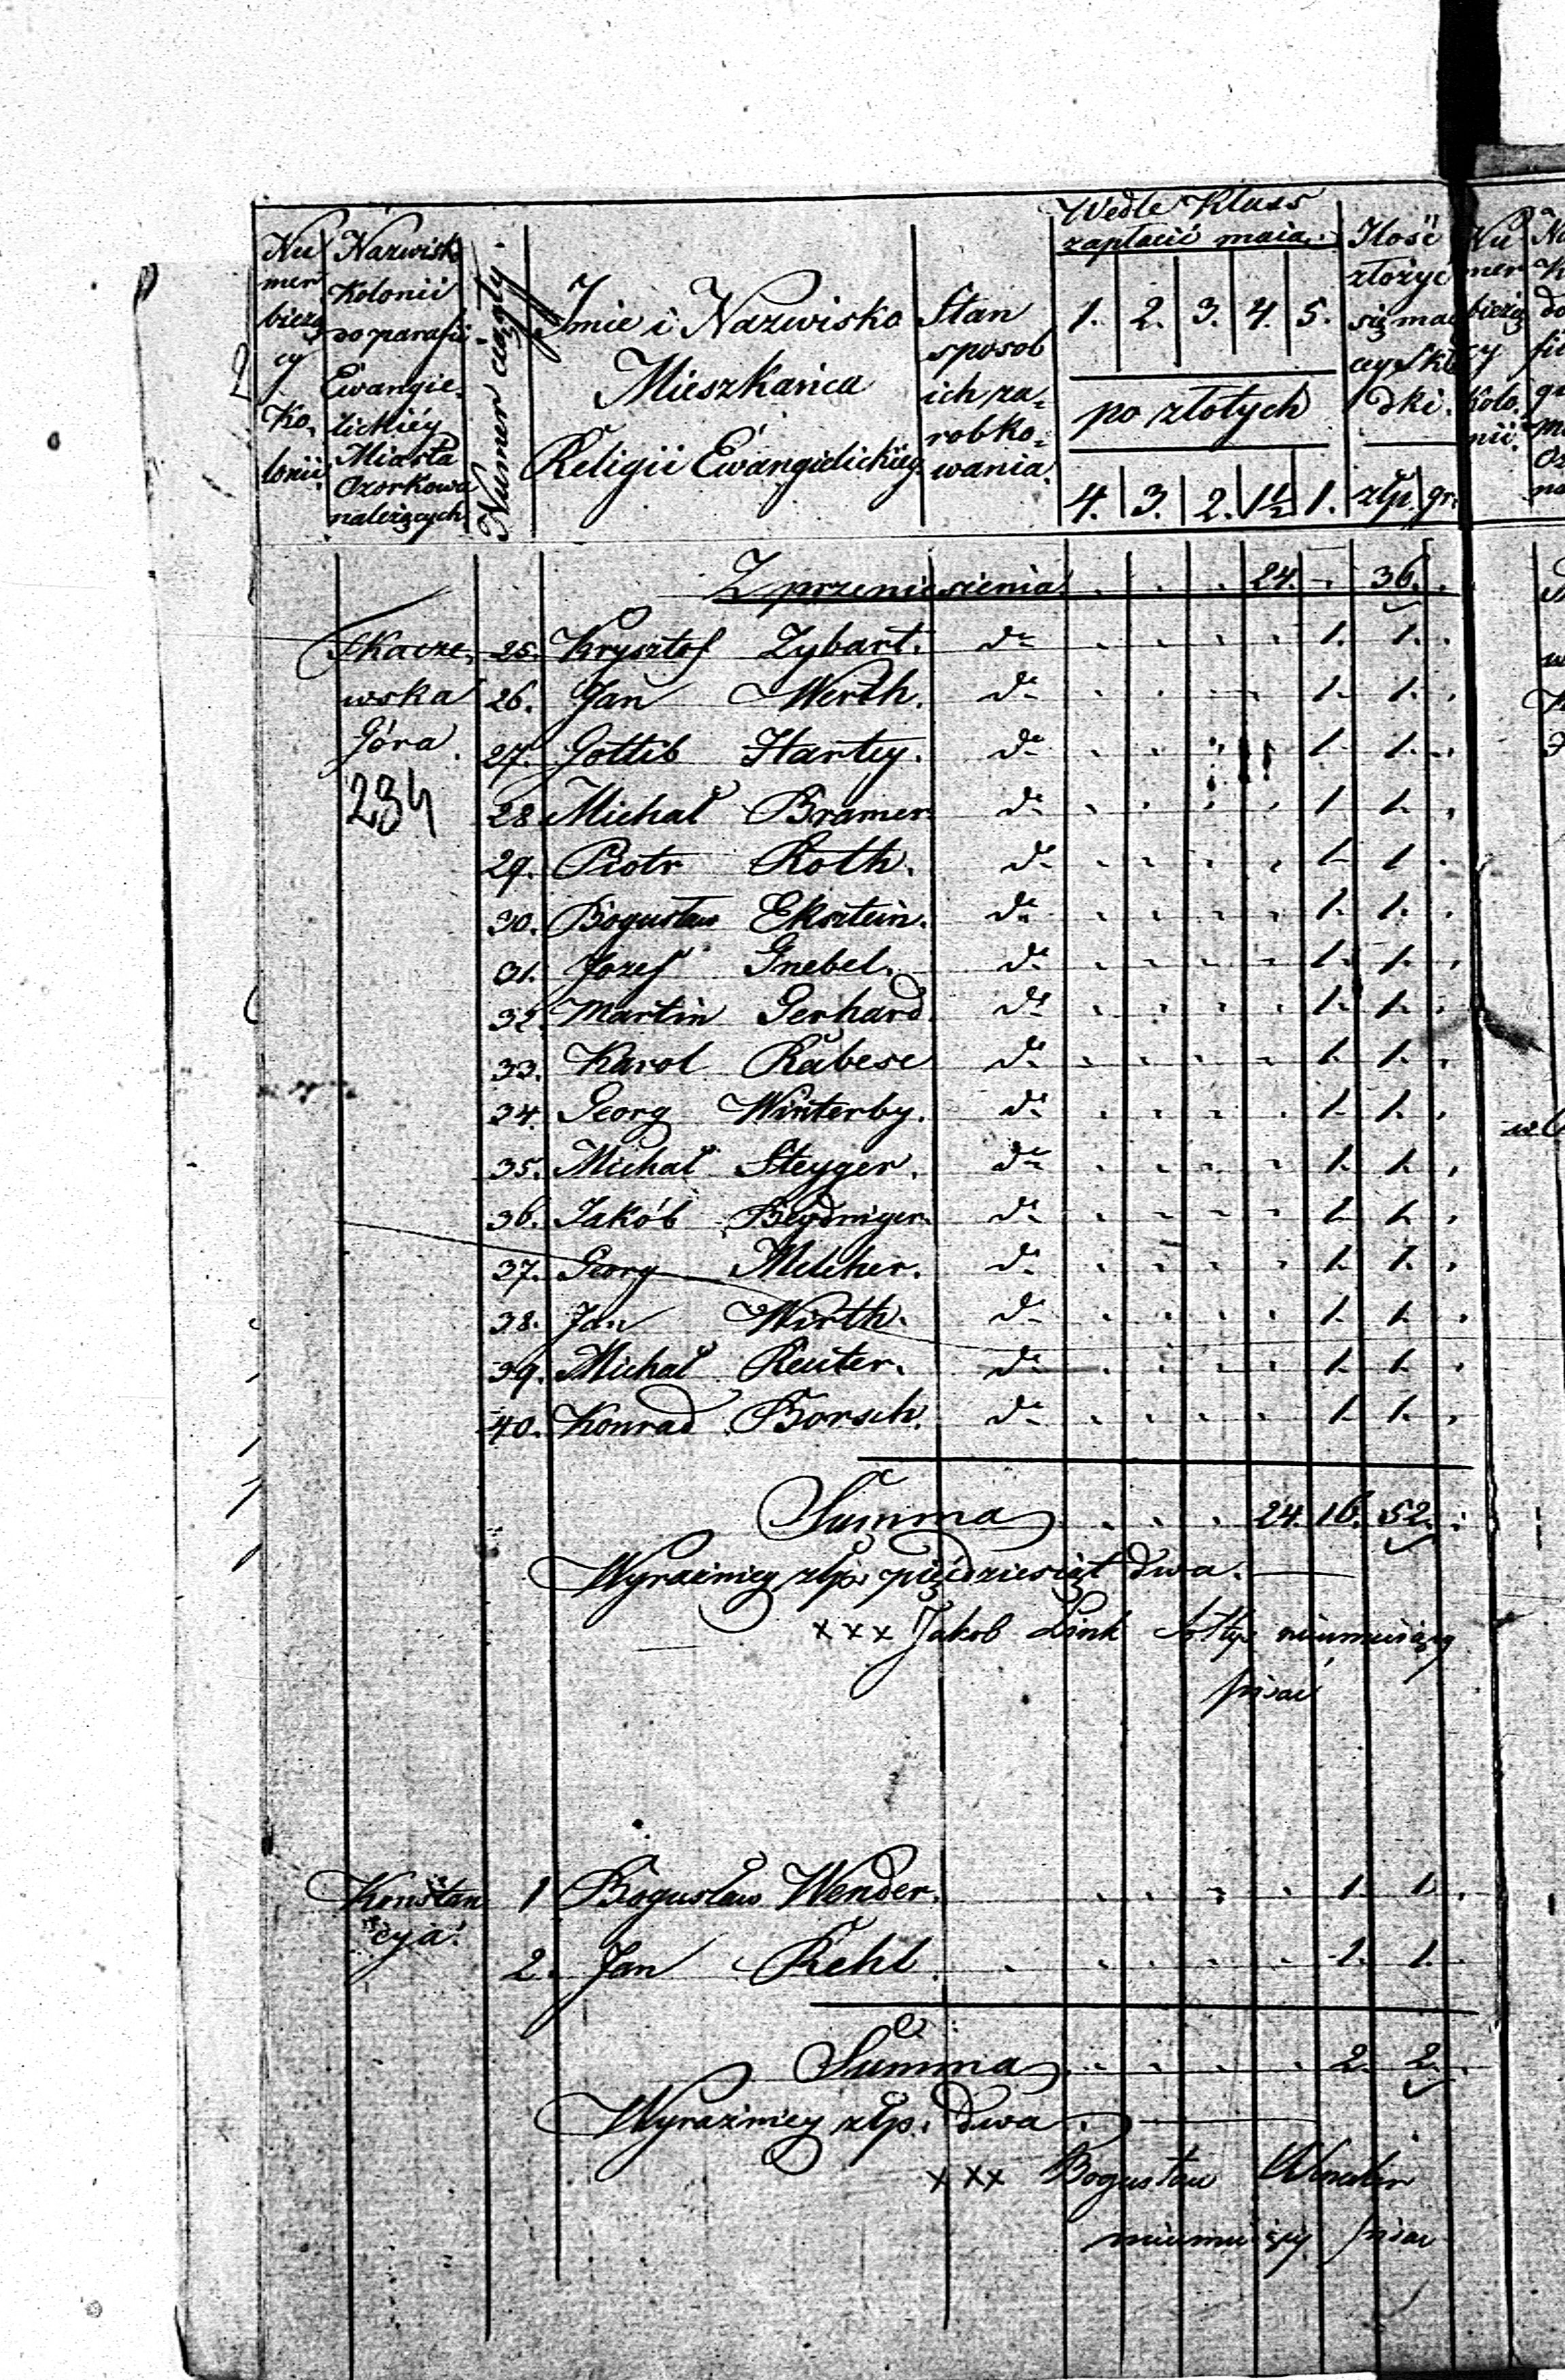 Numer bieżący Kolonii
Nazwisko Kolonii do parafii Ewangielickiéy Miasta Ozorkowa należących
Numer ciągły.
Jmie i Nazwisko Mieszkańca Religii Ewangielickiey
Stan sposob ich zarobkowania.
Wedle Klass zapłacić maią.
1. 2. 3. 4. 5.
po złotych
4. 3. 2. 1½ 1.
Ilość złożyć się maiącey składki.
złp. gr.
Z przeniesienia . . . 24. - 36. .
Skaczewska Góra. 25. Krysztof Zybart. do . . . . 1. 1. .
26. Jan Werth. do . . . . 1. 1. .
27. Gottlib Hartey. do . . . . 1. 1. .
284
28 Michał Bramer. do . . . . 1. 1. .
29. Piotr Roth. do . . . . 1. 1. .
30. Bogusław Eksztein. do . . . . 1. 1. .
31. Jozef Gnebel. do . . . . 1. 1. .
32. Martin Gerhard. do . . . . 1. 1. .
33. Karol Rabese do . . . . 1. 1. .
34. Georg Winterby. do . . . . 1. 1. .
35. Michał Steyger. do . . . . 1. 1. .
36. Jakób Beydniger. do . . . . 1. 1. .
37. Georg Melcher. do . . . . 1. 1. .
38. Jan Wirth. do . . . . 1. 1. .
39. Michał Reuter. do . . . . 1. 1. .
40. Konrad Borsch. do . . . . 1. 1. .
Summa . . . 24. 16. 52. .
Wyraźniey złp. pięćdziesiąt dwa.
xxx Jakob Link Sołtys nieumieiący
pisać
Konstancyja. 1 Bogusław Wender. . . . . 1. 1. .
2. Jan Rehl. . . . . . 1. 1. .
Summa . . . . 2. 2. .
Wyraźniey złp. dwa.
xxx Bogusław Wender
nieumieiący pisać